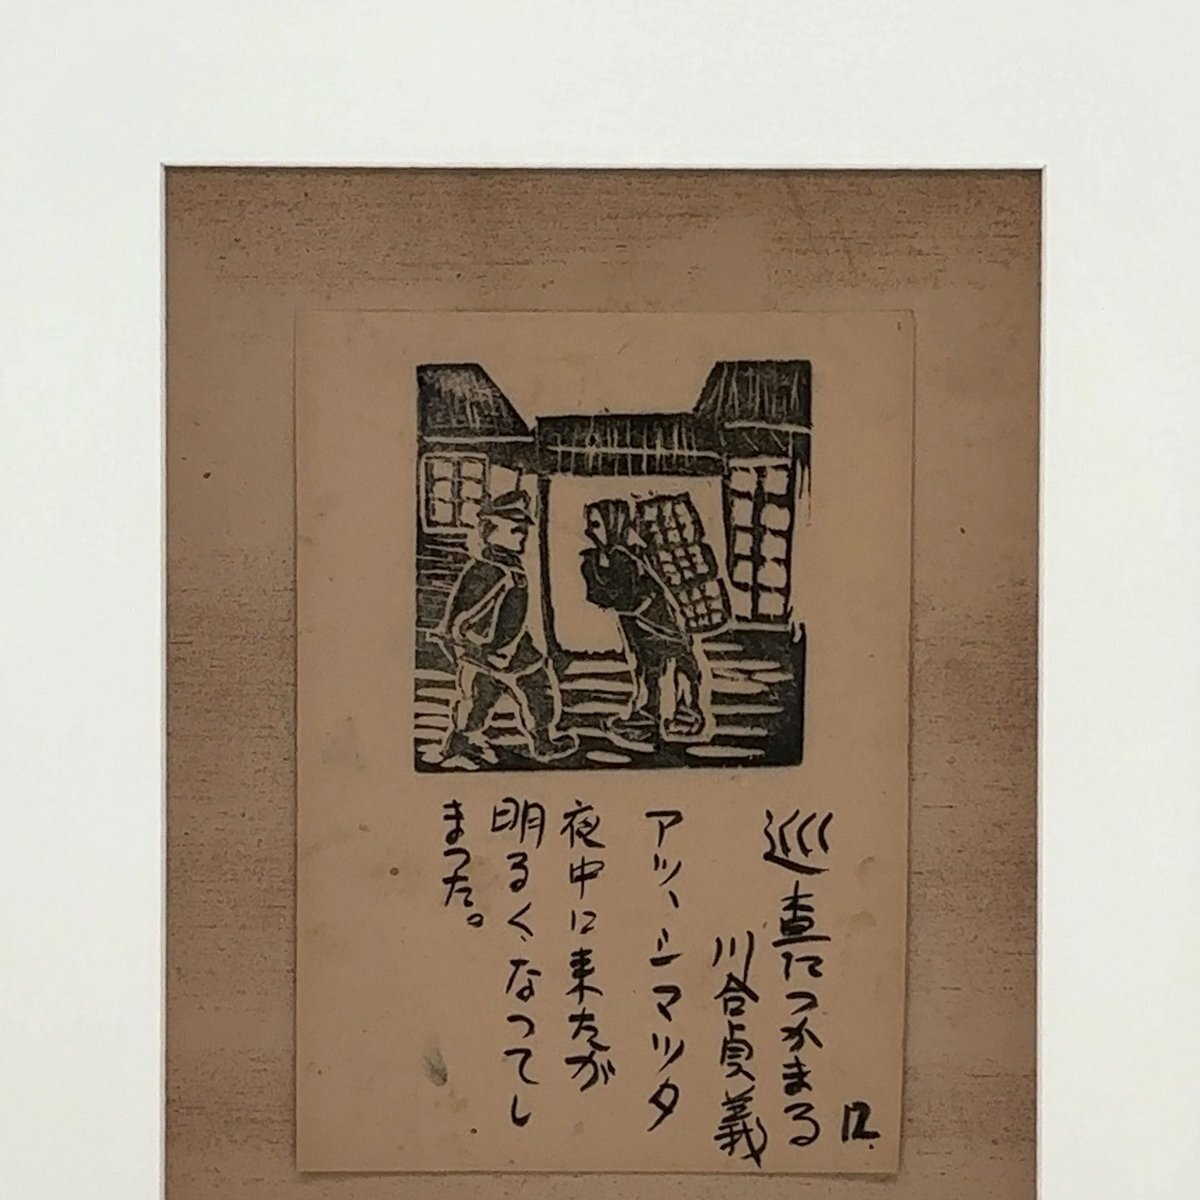 12.
巡査につかまる
川合貞義
アツ、シマツタ
夜中に来たが
明るくなつてし
まつた。